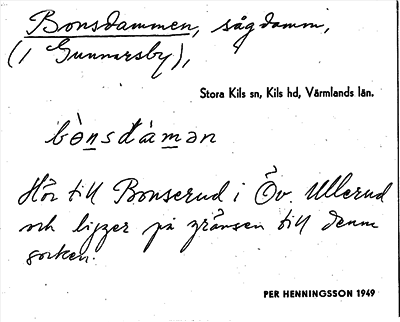 Bonsdammen, sågdamm,
(i Gunnarsby),
Stora Kils sn, Kils hd, Värmlands län.
bònsdàmən
Hör till Bonserud i Öv. Ullerud
och ligger på gränsen till denna
socken.
PER HENNINGSSON 1949